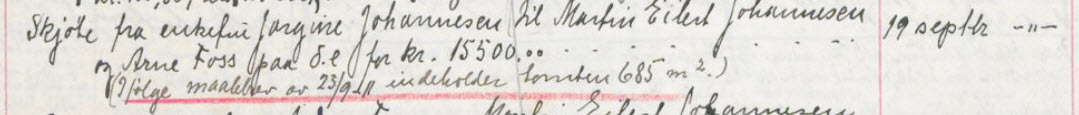 Skjøte fra enkefru Jørgine Johannesen til Martin Eilert Johannesen 19 septbr -"-
og Arne Foss paa d.e for kr. 15500.00
(Ifølge maalebrev av 23/9 indeholder tomten 685 m².)
Eilert Johannesen